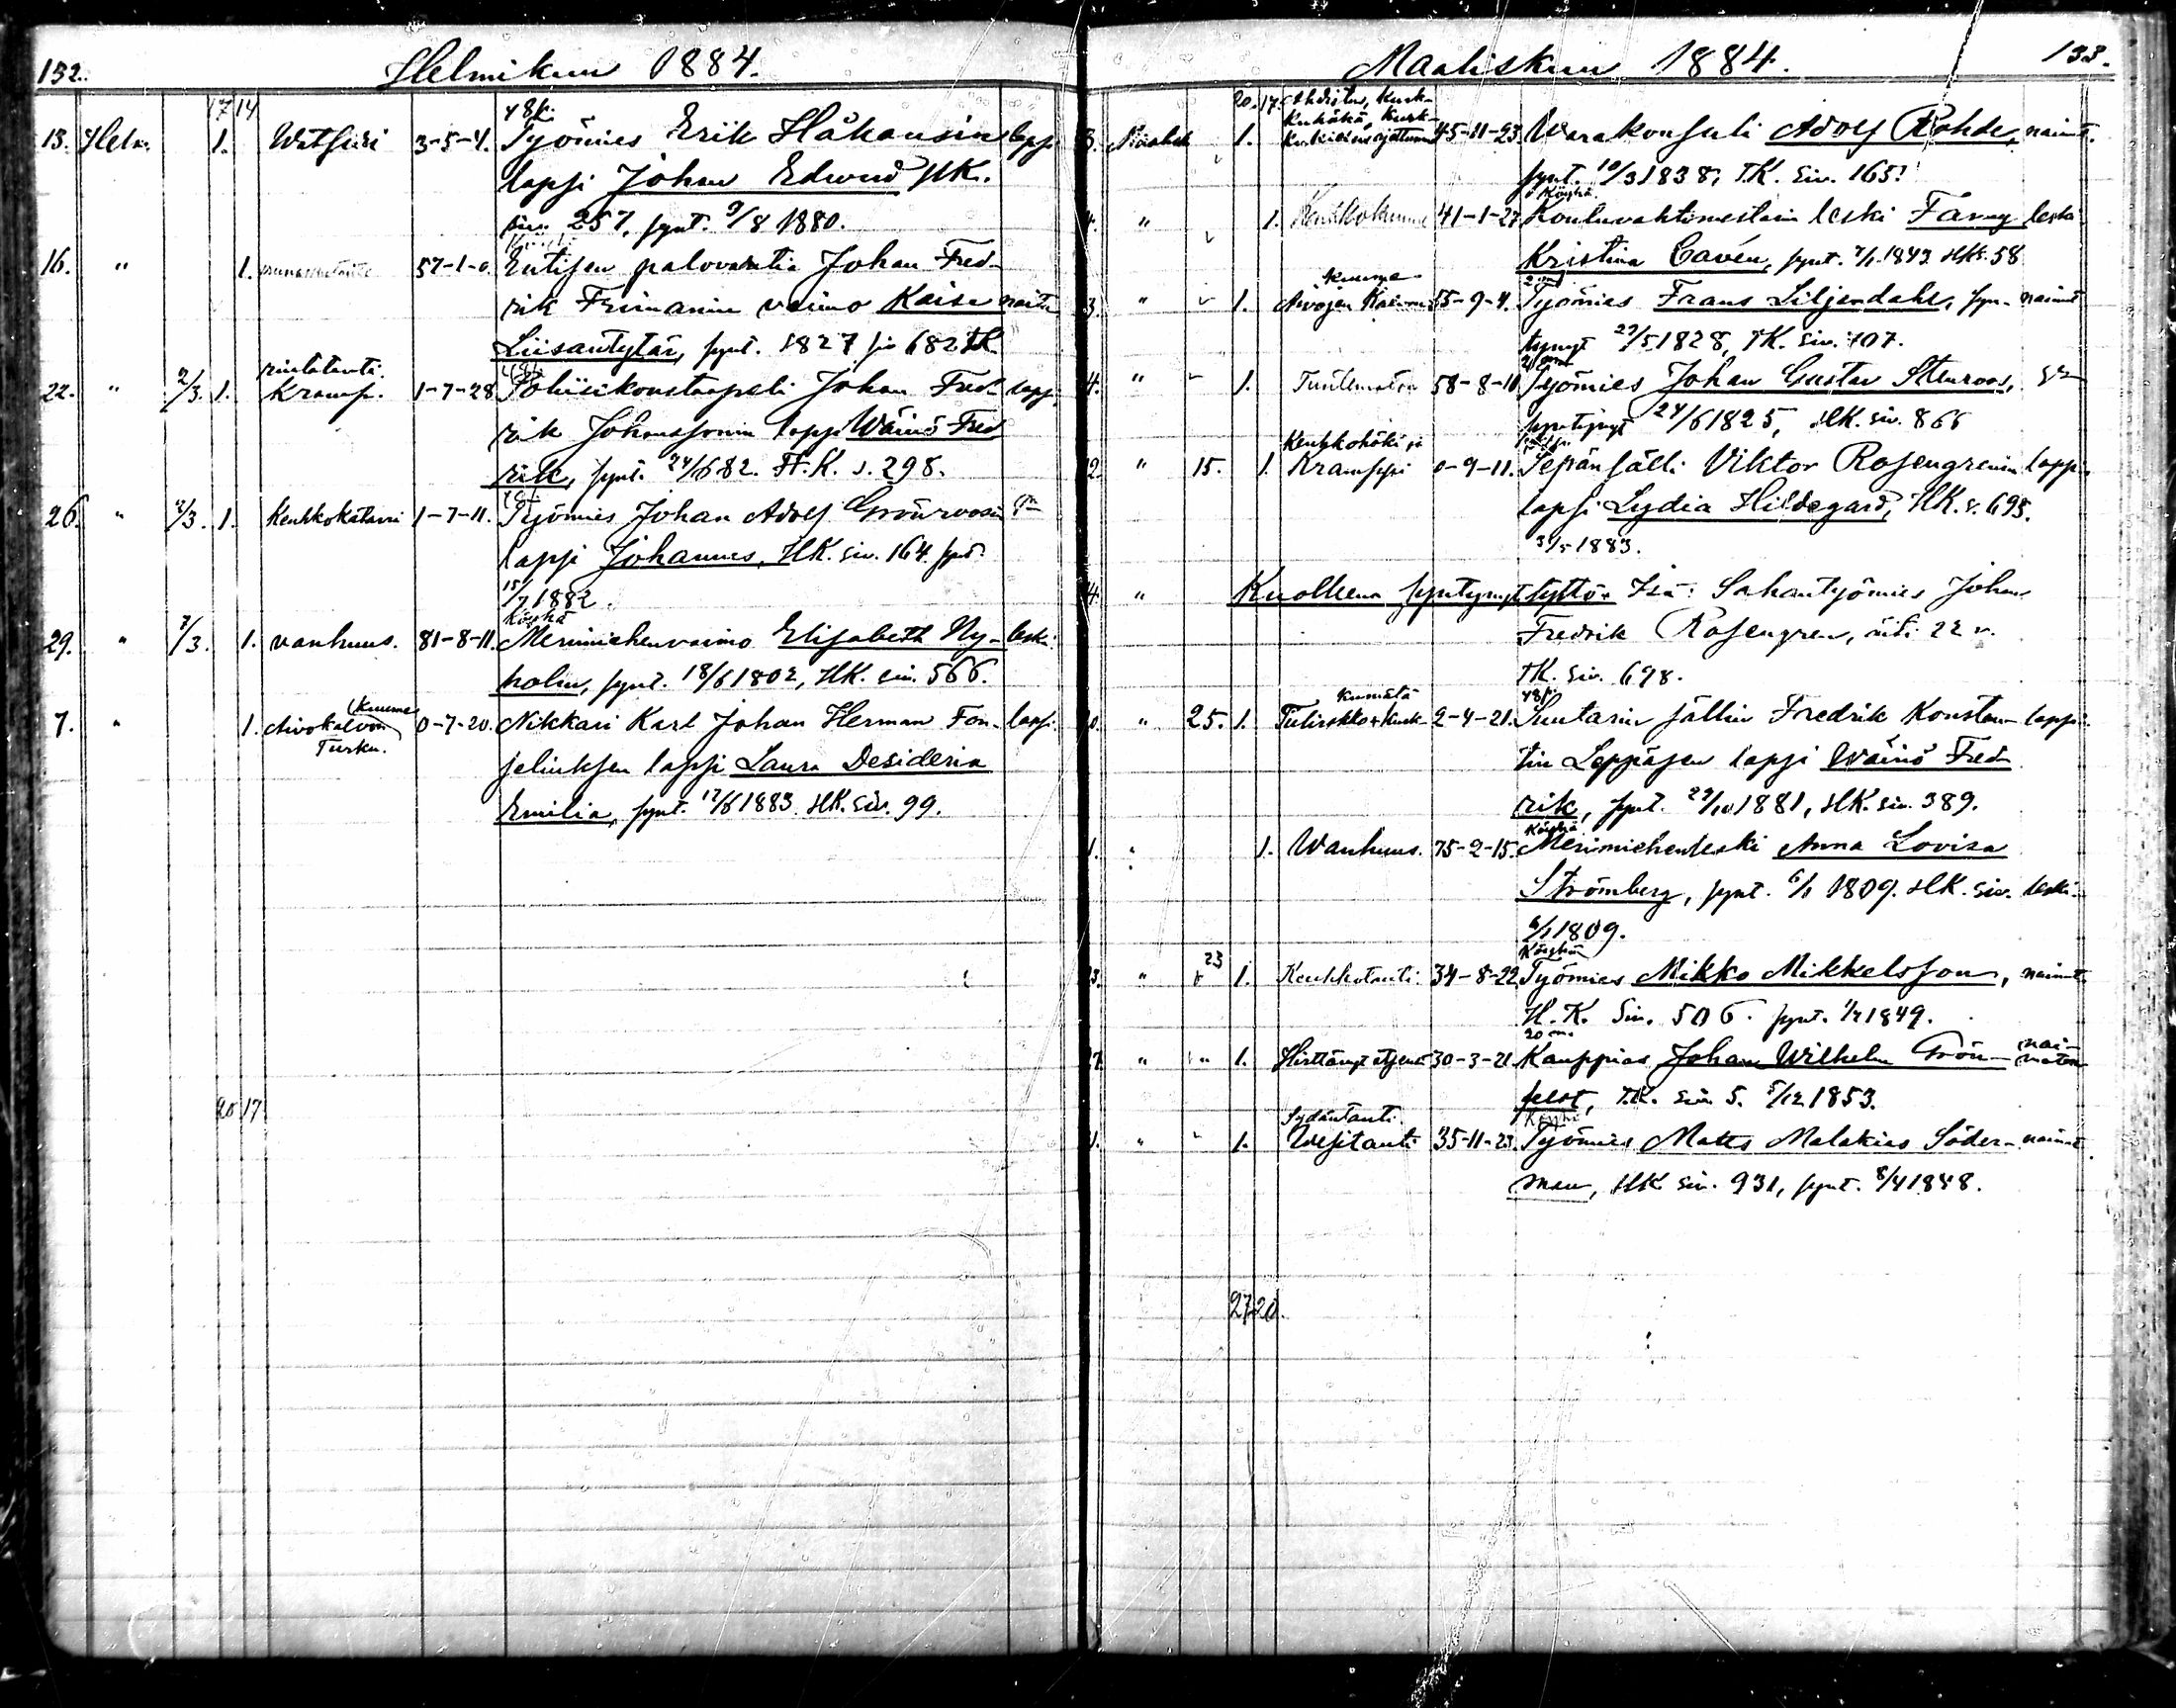 132.
Helmikuu 1884.
17 14
48p.
13. Helm. 1. 3-5-4. Työmies Erik Håkansin lapsi
lapsi Johan Edvard HK.
siv. 257, synt. 9/8 1880.
16. " 1. 57-1-0. Entisen palovahtia Johan Fred-
rik Frimanin vaimo Kaisa
Liisantytär, synt. 1827 HK
rintatauti.
22. " 2/3. 1. Kramp. 1-7-28 Poliisikonstaapeli Johan Fred- laps.
rik Johanssonin lapsi Wäinö Fred
rik, synt. 24/6 82. H.K. s. 298.
26. " 2/3. 1. Keuhkokatarri 1-7-11. Työmies Johan Adolf Grönroosin
lapsi Johannes, HK. siv. 164. synt.
15/7 1882.
Köyhä
29. " 7/3. 1. vanhuus. 81-8-11. Merimiehenvaimo Elisabeth Ny- leski
holm, synt. 18/6 1802, HK. siv. 566.
kuume
7. " 1. Aivokalvon 0-7-20. Nikkari Karl Johan Herman Fon- lapsi.
Turku.
seliuksen lapsi Laura Desideria
Emilia, synt. 17/6 1883. HK. siv. 99.
20 17
Maaliskuu 1884.
133.
20. 17.
3. Maalisk 1. 45-11-23. Warakonsuli Adolf Rohde, nainut.
synt. 10/3 1838, TK. siv. 165.
Köyhä
4. " 1. 41-1-27 Kouluvahtimestarin leski Fanny leski
Kristina Cavén, synt. 7/1 1843 HK. 58
kuume
3. " 1. Aivojen 55-9-4. Työmies Frans Liljendahl, syn- nainut
tynyt 29/5 1828, TK. siv. 107.
4. " 1. Tuntematon 58-8-11 Työmies Johan Gustav Stenroos,
syntynyt 24/6 1825, HK. siv. 866
12. " 15. 1. Kramppi 0-9-11. Sepänsälli Viktor Rosengrenin lapsi
lapsi Lydia Hildegard, HK. s. 695.
31/5 1883.
14. " Kuolleena syntynyt tyttö. Isä: Sahantyömies Johan
Fredrik Rosengren, äiti 22 v.
TK. siv. 698.
48p.
20. " 25. 1. Tulirokko 2-4-21. Suutarin sällin Fredrik Konstan- lapsi.
tin Leppäsen lapsi Wäinö Fred-
rik, synt. 29/10 1881, HK. siv. 389.
Köyhä
1. Wanhuus. 75-2-15. Merimiehenleski Anna Lovisa
Strömberg, synt. 6/1 1809. HK. siv. leski.
6/1 1809.
Köyhä
23
" 1. Keuhkotauti. 34-8-22 Työmies Mikko Mikkelsson, nainut.
H.K. Siv. 506. synt. 1/7 1849.
27. " " 1. Hirttänyt itsensä 30-3-21 Kauppias Johan Wilhelm Grön- nai-
maton
felot, T.K. siv. 5. 5/12 1853.
Sydäntauti
Köyhä
" 1. Wesitauti 35-11-23. Työmies Matts Malakias Söder- nainut.
man, HK siv. 931, synt. 8/4 1848.
27 20.